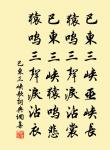 巴東三峽巫峽長
猿鳴三聲淚沾裳
巴東三峽猿鳴悲
猿鳴三聲淚沾衣
巴東三峽歌